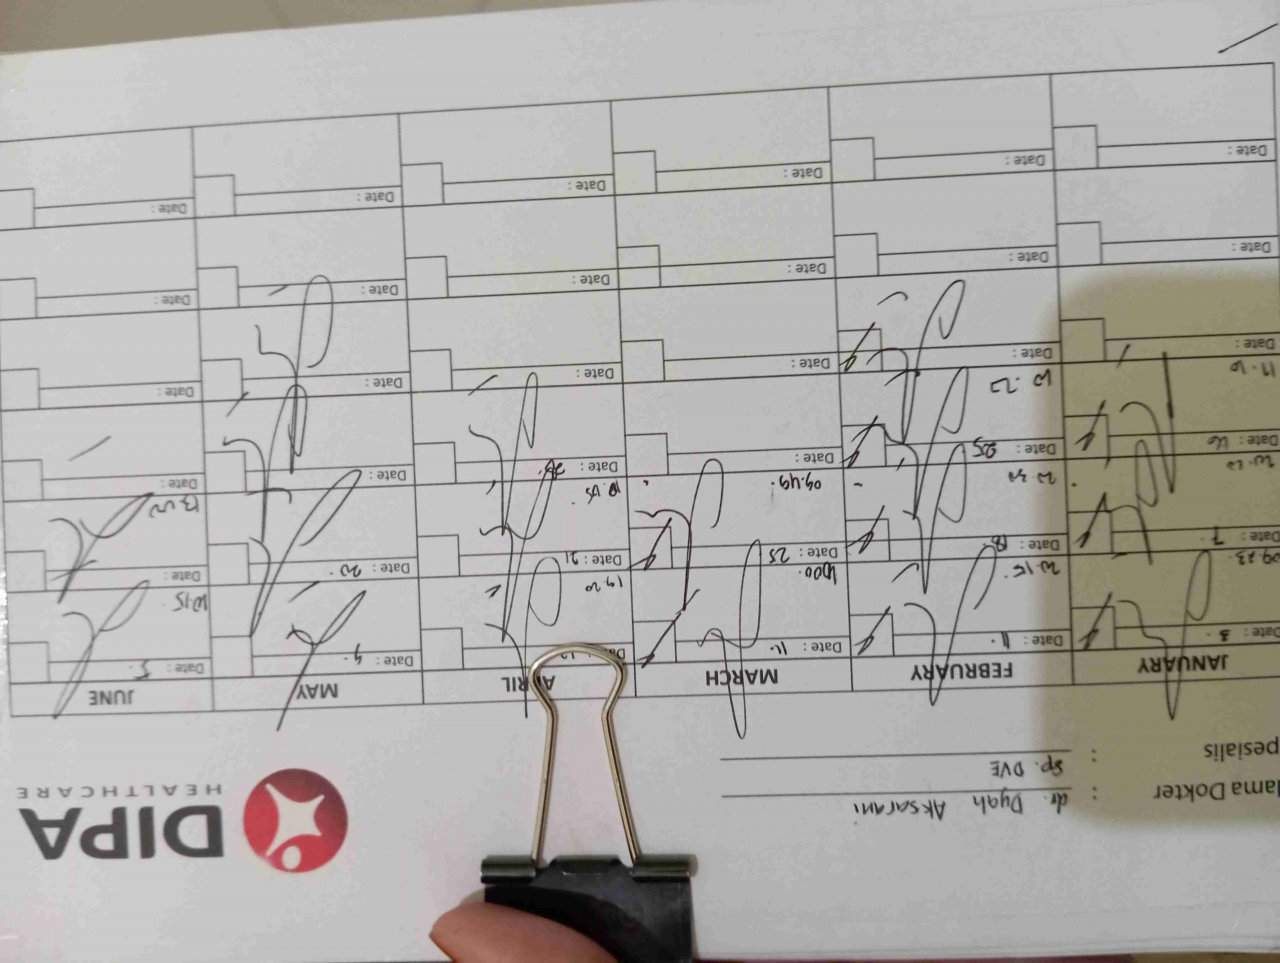 DIPA
HEALTHCARE
Nama Dokter : dr. Dyah Aksarani
Spesialis : Sp. DVE
JANUARY FEBRUARY MARCH APRIL MAY JUNE
Date: 3. Date: 11. Date: 11. Date: 9. Date: 5.
09.23 20.15 19.20 10.15
Date: 7. Date: 18. Date: 25 Date: 21. Date: 20. Date:
20.20 09.49.
Date: 16 Date: 25 Date: Date: 28. Date: Date:
Date: Date: Date: Date: Date: Date:
Date: Date: Date: Date: Date: Date:
Date: Date: Date: Date: Date: Date: